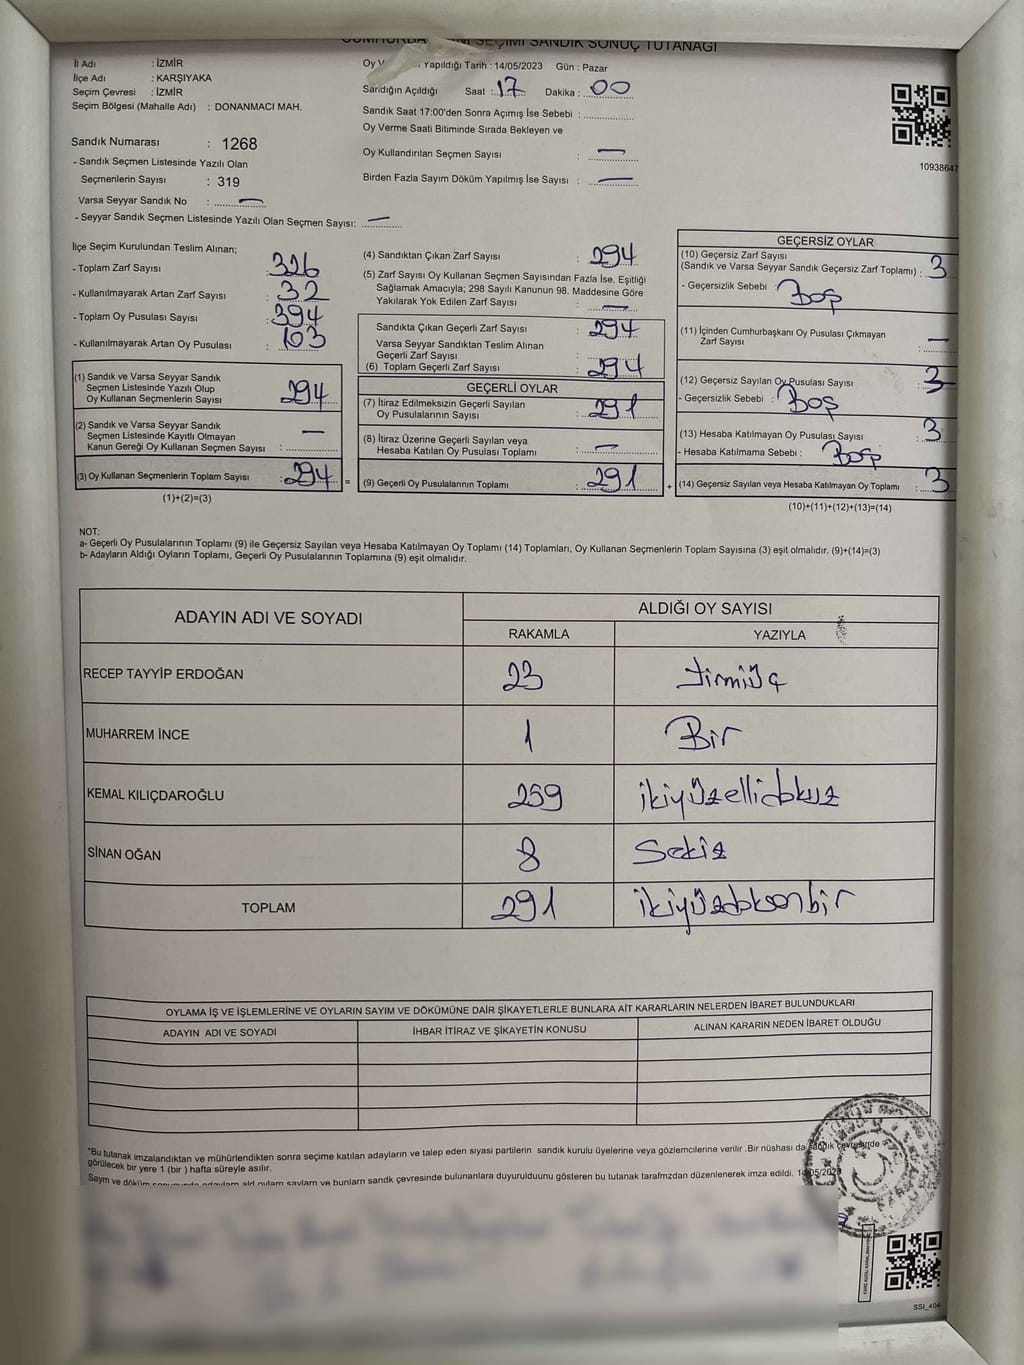 SEÇİMİ SANDIK SONUÇ TUTANAĞI
İl Adı : İZMİR
İlçe Adı : KARŞIYAKA
Seçim Çevresi : İZMİR
Seçim Bölgesi (Mahalle Adı) : DONANMACI MAH.
Sandık Numarası : 1268
- Sandık Seçmen Listesinde Yazılı Olan
Seçmenlerin Sayısı : 319
Varsa Seyyar Sandık No : —
- Seyyar Sandık Seçmen Listesinde Yazılı Olan Seçmen Sayısı: —
Oy Yapıldığı Tarih : 14/05/2023 Gün : Pazar
Sandığın Açıldığı Saat : 17 Dakika : 00
Sandık Saat 17:00'den Sonra Açımış İse Sebebi :
Oy Verme Saati Bitiminde Sırada Bekleyen ve
Oy Kullandırılan Seçmen Sayısı : —
Birden Fazla Sayım Döküm Yapılmış İse Sayısı : —
10938647
İlçe Seçim Kurulundan Teslim Alınan;
- Toplam Zarf Sayısı : 326
- Kullanılmayarak Artan Zarf Sayısı : 32
- Toplam Oy Pusulası Sayısı : 394
- Kullanılmayarak Artan Oy Pusulası : 103
(1) Sandık ve Varsa Seyyar Sandık
Seçmen Listesinde Yazılı Olup
Oy Kullanan Seçmenlerin Sayısı : 294
(2) Sandık ve Varsa Seyyar Sandık
Seçmen Listesinde Kayıtlı Olmayan
Kanun Gereği Oy Kullanan Seçmen Sayısı : —
(3) Oy Kullanan Seçmenlerin Toplam Sayısı : 294 =
(1)+(2)=(3)
(4) Sandıktan Çıkan Zarf Sayısı : 294
(5) Zarf Sayısı Oy Kullanan Seçmen Sayısından Fazla İse, Eşitliği
Sağlamak Amacıyla; 298 Sayılı Kanunun 98. Maddesine Göre
Yakılarak Yok Edilen Zarf Sayısı : —
Sandıkta Çıkan Geçerli Zarf Sayısı : 294
Varsa Seyyar Sandıktan Teslim Alınan
Geçerli Zarf Sayısı :
(6) Toplam Geçerli Zarf Sayısı : 294
GEÇERLİ OYLAR
(7) İtiraz Edilmeksizin Geçerli Sayılan
Oy Pusulalarının Sayısı : 291
(8) İtiraz Üzerine Geçerli Sayılan veya
Hesaba Katılan Oy Pusulası Toplamı : —
(9) Geçerli Oy Pusulalarının Toplamı : 291 +
GEÇERSİZ OYLAR
(10) Geçersiz Zarf Sayısı
(Sandık ve Varsa Seyyar Sandık Geçersiz Zarf Toplamı) : 3
- Geçersizlik Sebebi : Boş
(11) İçinden Cumhurbaşkanı Oy Pusulası Çıkmayan
Zarf Sayısı : —
(12) Geçersiz Sayılan Oy Pusulası Sayısı : 3
- Geçersizlik Sebebi : Boş
(13) Hesaba Katılmayan Oy Pusulası Sayısı : 3
- Hesaba Katılmama Sebebi : Boş
(14) Geçersiz Sayılan veya Hesaba Katılmayan Oy Toplamı : 3
(10)+(11)+(12)+(13)=(14)
NOT:
a- Geçerli Oy Pusulalarının Toplamı (9) ile Geçersiz Sayılan veya Hesaba Katılmayan Oy Toplamı (14) Toplamları, Oy Kullanan Seçmenlerin Toplam Sayısına (3) eşit olmalıdır. (9)+(14)=(3)
b- Adayların Aldığı Oyların Toplamı, Geçerli Oy Pusulalarının Toplamına (9) eşit olmalıdır.
ADAYIN ADI VE SOYADI
ALDIĞI OY SAYISI
RAKAMLA YAZIYLA
RECEP TAYYİP ERDOĞAN 23 Yirmiüç
MUHARREM İNCE 1 Bir
KEMAL KILIÇDAROĞLU 259 ikiyüzellidokuz
SİNAN OĞAN 8 Sekiz
TOPLAM 291 ikiyüzdoksanbir
OYLAMA İŞ VE İŞLEMLERİNE VE OYLARIN SAYIM VE DÖKÜMÜNE DAİR ŞİKAYETLERLE BUNLARA AİT KARARLARIN NELERDEN İBARET BULUNDUKLARI
ADAYIN ADI VE SOYADI İHBAR İTİRAZ VE ŞİKAYETİN KONUSU ALINAN KARARIN NEDEN İBARET OLDUĞU
*Bu tutanak imzalandıktan ve mühürlendikten sonra seçime katılan adayların ve talep eden siyasi partilerin sandık kurulu üyelerine veya gözlemcilerine verilir .Bir nüshası da sandık çevresinde
görülecek bir yere 1 (bir ) hafta süreyle asılır.
Sayım ve döküm
SSİ_404